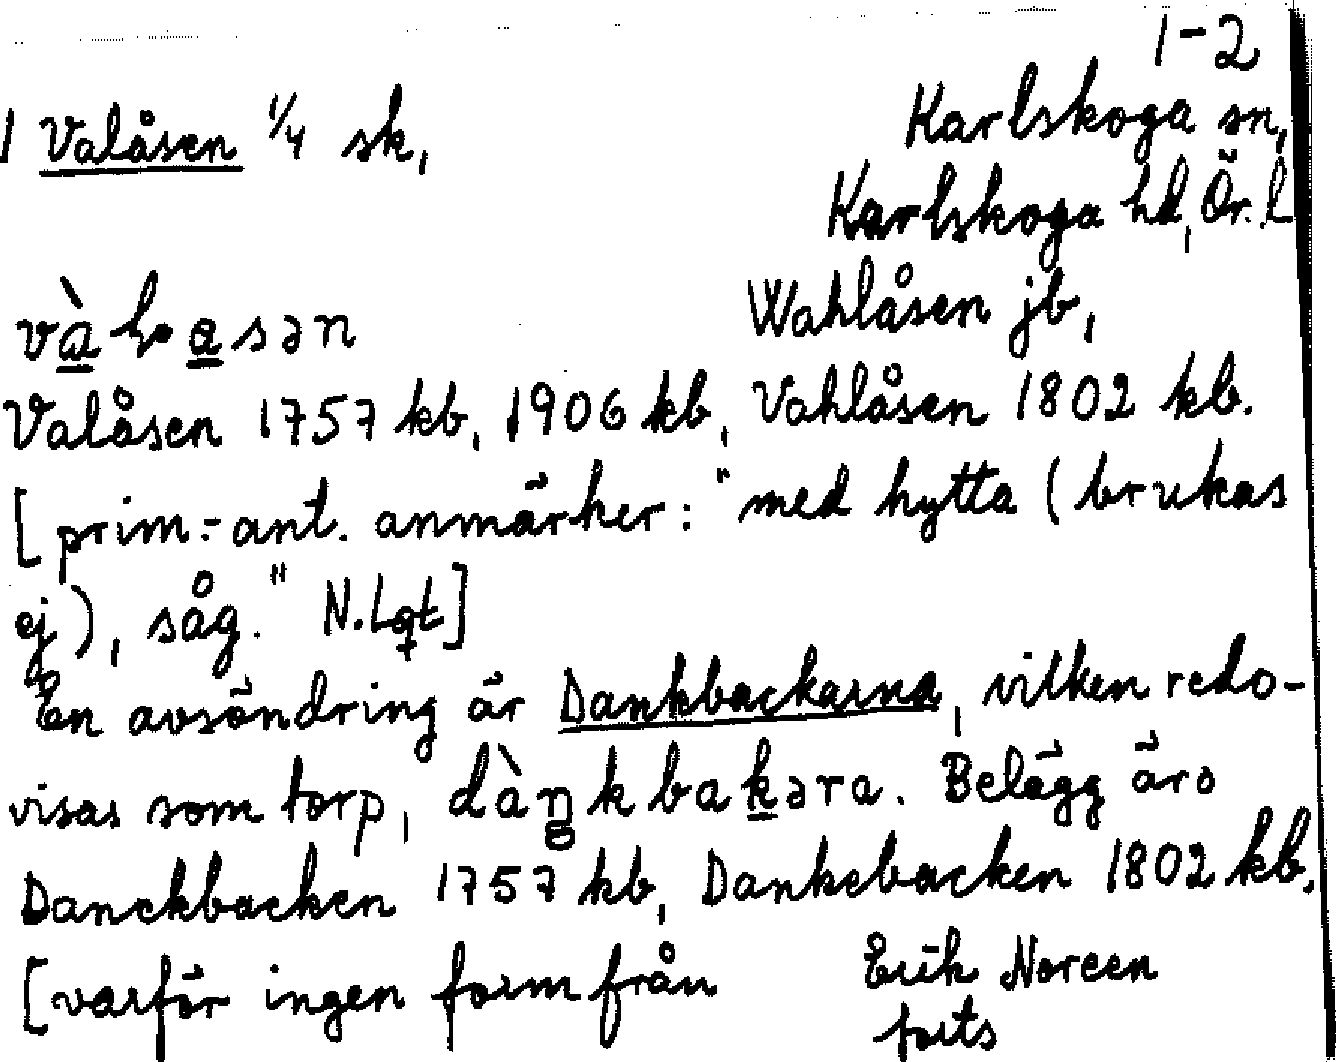 1-2
1 Valåsen 1/4 sk, Karlskoga sn,
Karlskoga hd, Ör. l
Wahlåsen jb,
Valåsen 1757 kb, 1906 kb, Vahlåsen 1802 kb.
[prim.-ant. anmärker: "med hytta (brukas
ej), såg." N. Lqt]
En avsöndring är Dankbackarna, vilken redo-
visas som torp, dàŋkbakəra. Belägg äro
Danckbacken 1757 kb, Dankebacken 1802 kb.
[varför ingen form från Erik Noreen
forts